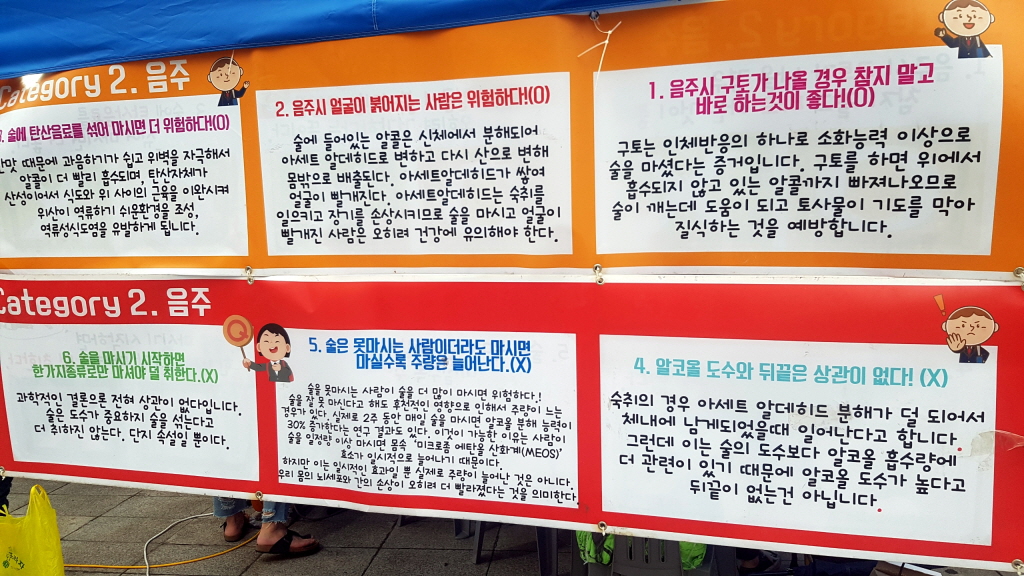 Category 2. 음주
술에 탄산음료를 섞어 마시면 더 위험하다!(O)
때문에 과음하기가 쉽고 위벽을 자극해서
알콜이 더 빨리 흡수되며, 탄산자체가
산성이어서 식도와 위 사이의 근육을 이완시켜
위산이 역류하기 쉬운환경을 조성,
역류성식도염을 유발하게 됩니다.
2. 음주시 얼굴이 붉어지는 사람은 위험하다!(O)
술에 들어있는 알콜은 신체에서 분해되어
아세트 알데히드로 변하고 다시 산으로 변해
몸밖으로 배출된다. 아세트알데히드가 쌓여
얼굴이 빨개진다. 아세트알데히드는 숙취를
일으키고 장기를 손상시키므로 술을 마시고 얼굴이
빨개진 사람은 오히려 건강에 유의해야 한다.
1. 음주시 구토가 나올 경우 참지 말고
바로 하는것이 좋다!(O)
구토는 인체반응의 하나로 소화능력 이상으로
술을 마셨다는 증거입니다. 구토를 하면 위에서
흡수되지 않고 있는 알콜까지 빠져나오므로
술이 깨는데 도움이 되고 토사물이 기도를 막아
질식하는 것을 예방합니다.
Category 2. 음주
6. 술을 마시기 시작하면
한가지종류로만 마셔야 덜 취한다.(X)
과학적인 결론으로 전혀 상관이 없다입니다.
술은 도수가 중요하지 술을 섞는다고
더 취하진 않는다. 단지 속설일 뿐이다.
Q
5. 술은 못마시는 사람이더라도 마시면
마실수록 주량은 늘어난다.(X)
술을 못마시는 사람이 술을 더 많이 마시면 위험하다!
술을 잘 못 마신다고 해도 후천적인 영향으로 인해서 주량이 느는
경우가 있다. 실제로 2주 동안 매일 술을 마시면 알코올 분해 능력이
30% 증가한다는 연구 결과도 있다. 이것이 가능한 이유는 사람이
술을 일정량 이상 마시면 몸속 '미크로좀 에탄올 산화계(MEOS)'
효소가 일시적으로 늘어나기 때문이다.
하지만 이는 일시적인 효과일 뿐 실제로 주량이 늘어난 것은 아니다.
우리 몸의 뇌세포와 간의 손상이 오히려 더 빨라졌다는 것을 의미한다.
4. 알코올 도수와 뒤끝은 상관이 없다! (X)
숙취의 경우 아세트 알데히드 분해가 덜 되어서
체내에 남게되었을때 일어난다고 합니다.
그런데 이는 술의 도수보다 알코올 흡수량에
더 관련이 있기 때문에 알코올 도수가 높다고
뒤끝이 없는건 아닙니다.